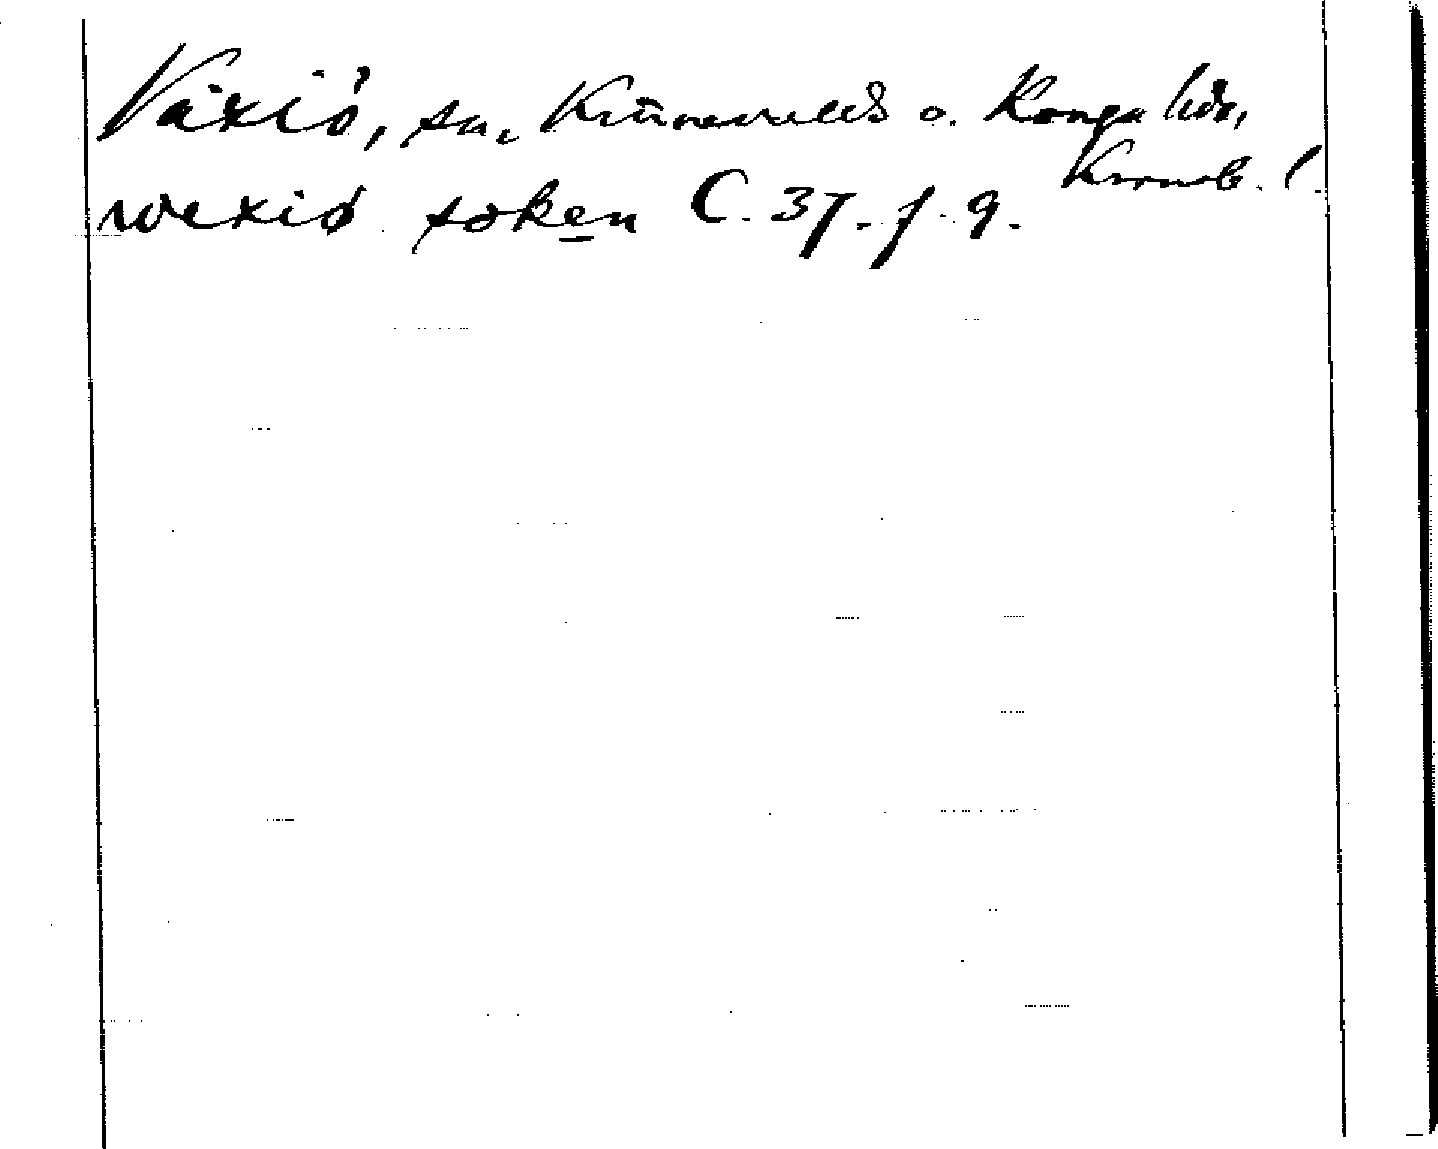 Växiö, sn, Kinnevalds o. Konga hdr,
Kronob. l.
wexiø soken C. 37. f. 9.